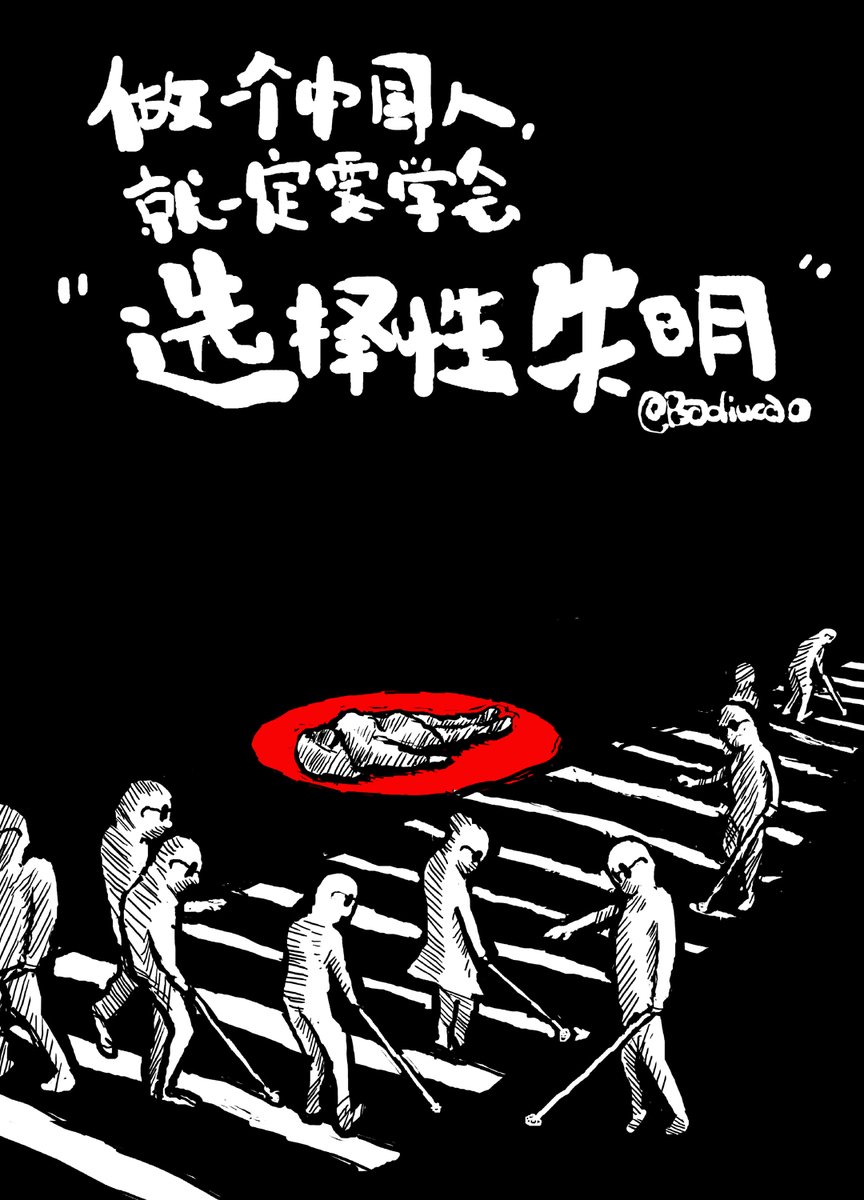 做一个中国人，
就一定要学会
“选择性失明”
@Badiucao